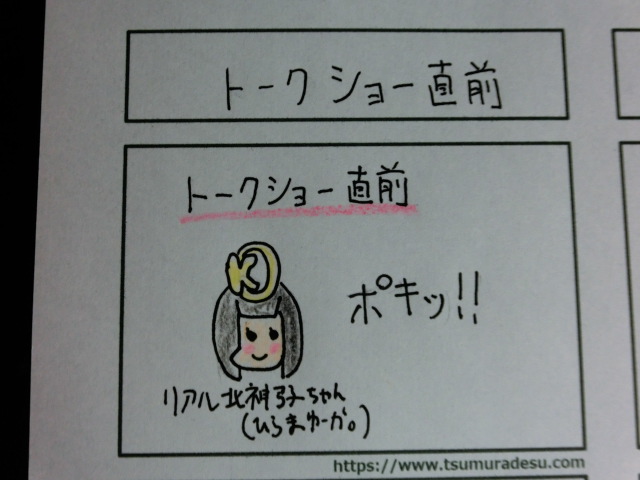 トークショー直前
トークショー直前
K
ポキッ!!
リアル北神弓子ちゃん
(ひらまゆーか。)
https://www.tsumuradesu.com